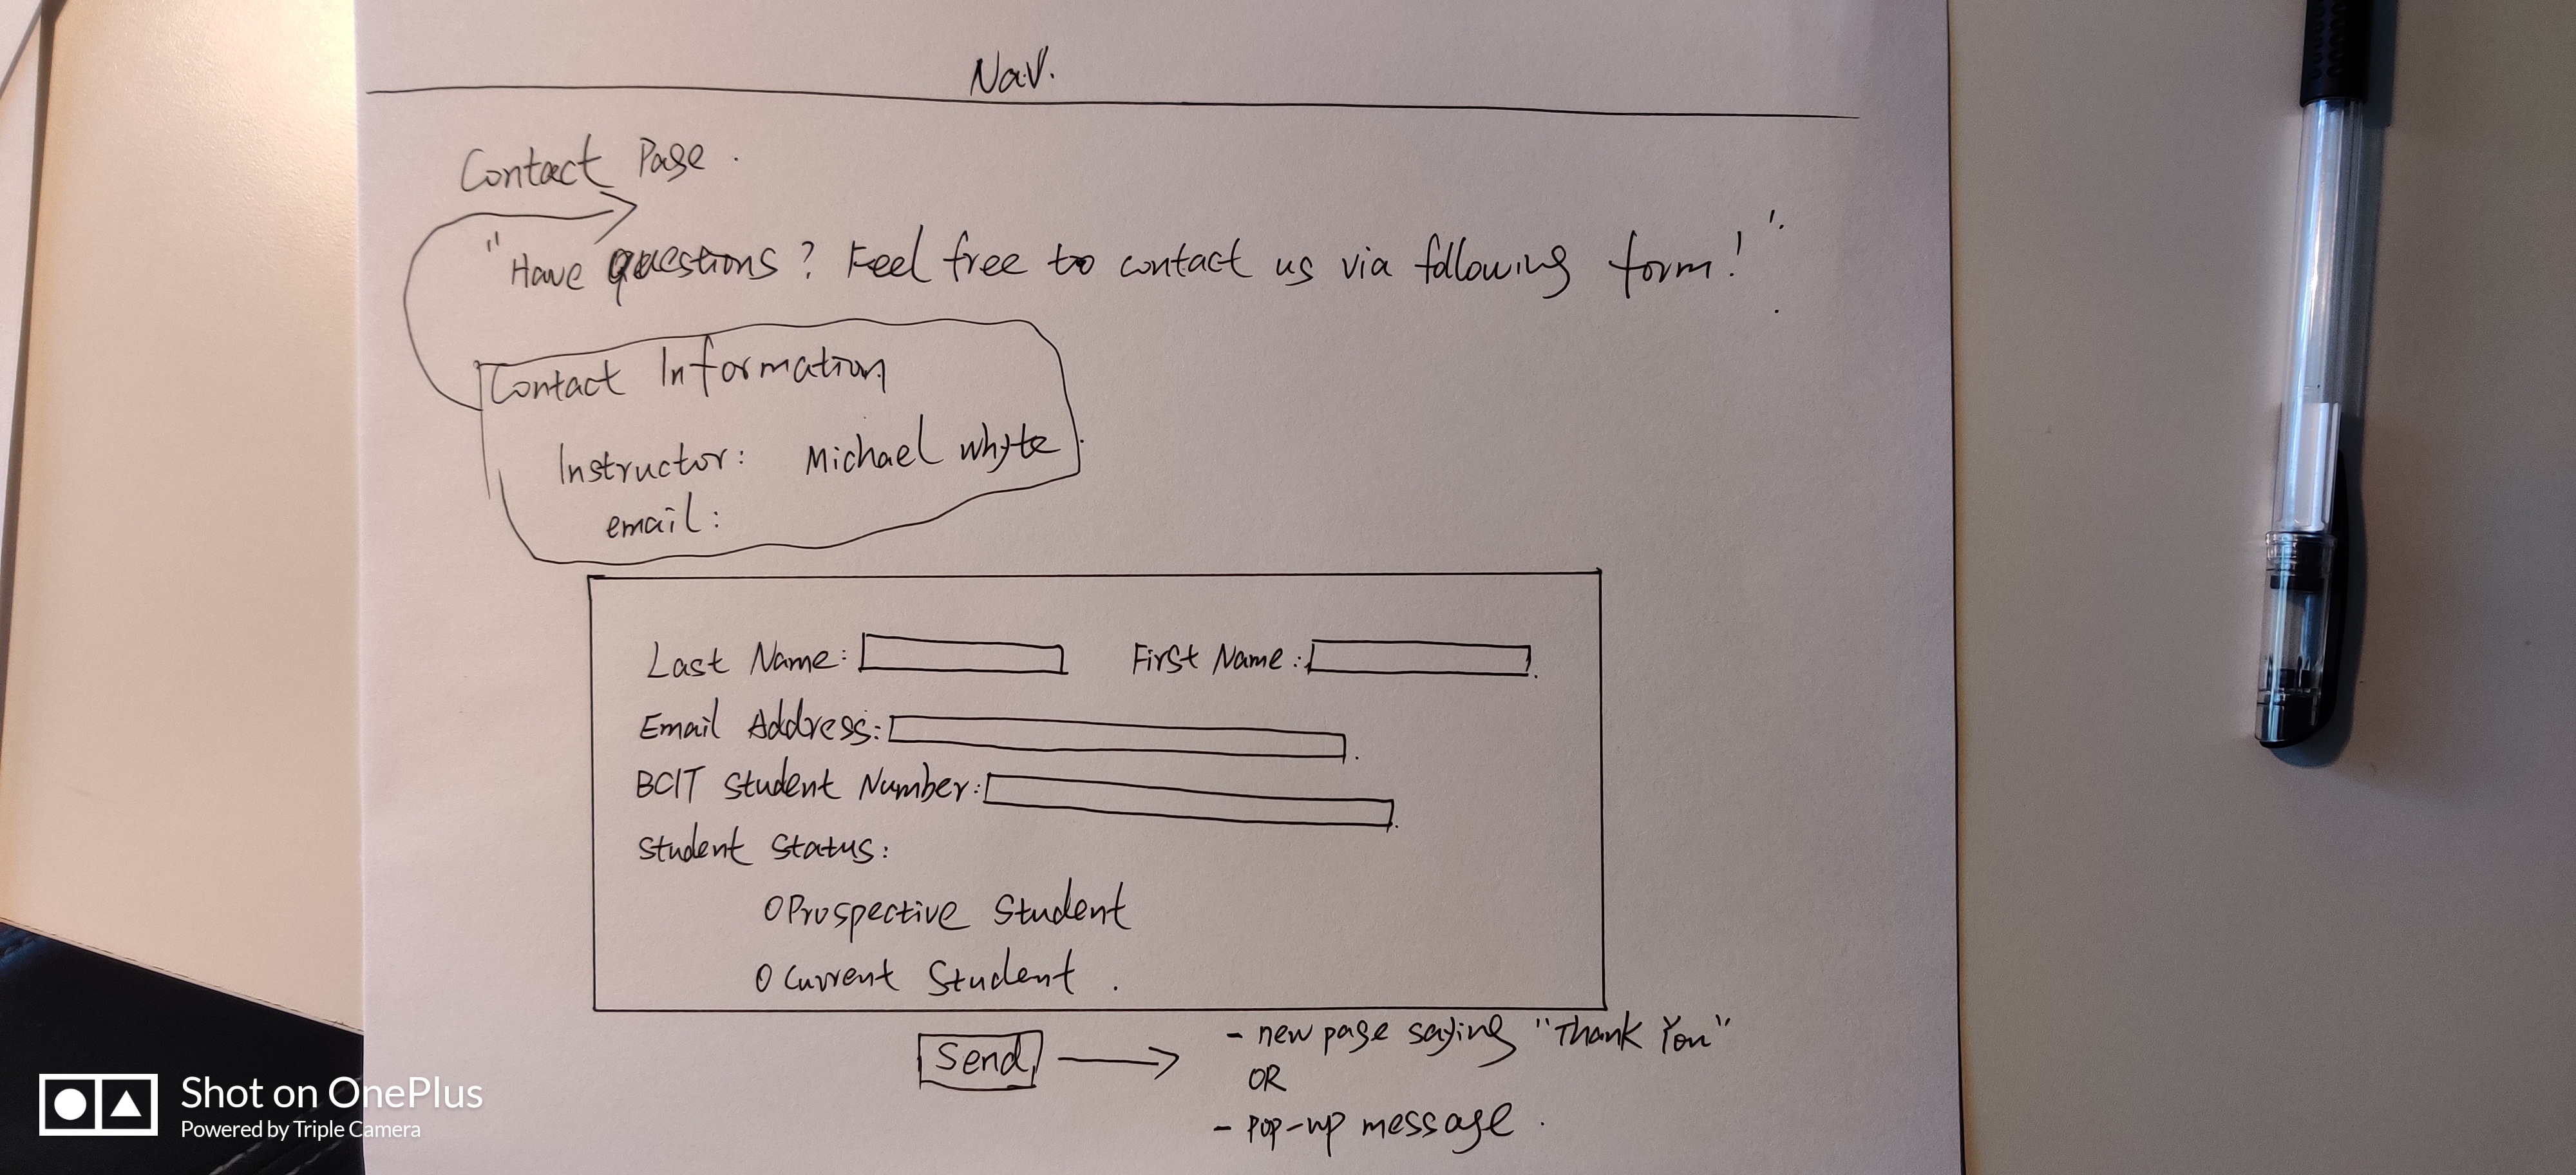 Nav.
Contact Page.
"Have questions? Feel free to contact us via following form!".
Contact Information
Instructor: Michael Whyte
email:
Last Name: First Name:
Email Address:
BCIT Student Number:
Student Status:
Prospective Student
Current Student.
Send
- new page saying "Thank You"
OR
- Pop-up message.
Shot on OnePlus
Powered by Triple Camera